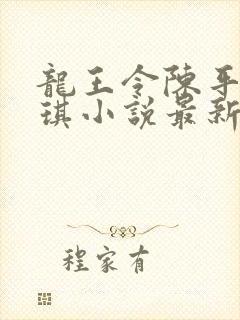 龍王令陳平
琪小說最新
程家有